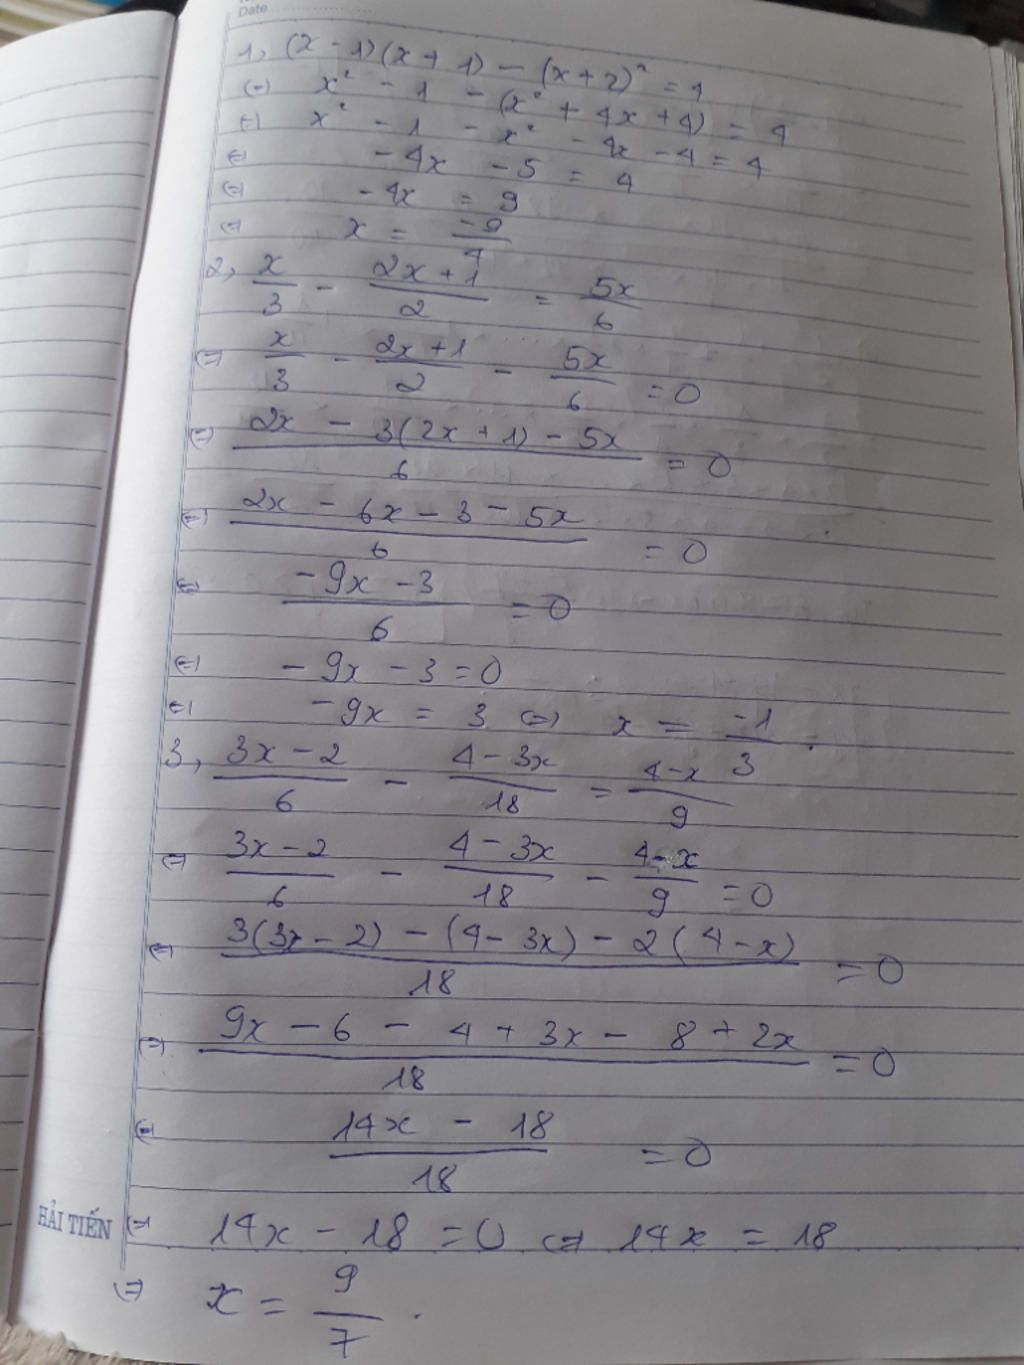 Date
1, (x - 1)(x + 1) - (x + 2)² = 4
(=) x² - 1 - (x² + 4x + 4) = 4
(=) x² - 1 - x² - 4x - 4 = 4
(=) - 4x - 5 = 4
(=) - 4x = 9
(=) x = -9/4
2, x/3 - (2x + 1)/2 = 5x/6
(=) x/3 - (2x + 1)/2 - 5x/6 = 0
(=) (2x - 3(2x + 1) - 5x)/6 = 0
(=) (2x - 6x - 3 - 5x)/6 = 0
(=) (- 9x - 3)/6 = 0
(=) - 9x - 3 = 0
(=) - 9x = 3 (=) x = -1/3 .
3, (3x - 2)/6 - (4 - 3x)/18 = (4 - x)/9
(=) (3x - 2)/6 - (4 - 3x)/18 - (4 - x)/9 = 0
(=) (3(3x - 2) - (4 - 3x) - 2(4 - x))/18 = 0
(=) (9x - 6 - 4 + 3x - 8 + 2x)/18 = 0
(=) (14x - 18)/18 = 0
(=) 14x - 18 = 0 (=) 14x = 18
(=) x = 9/7 .
HẢI TIẾN